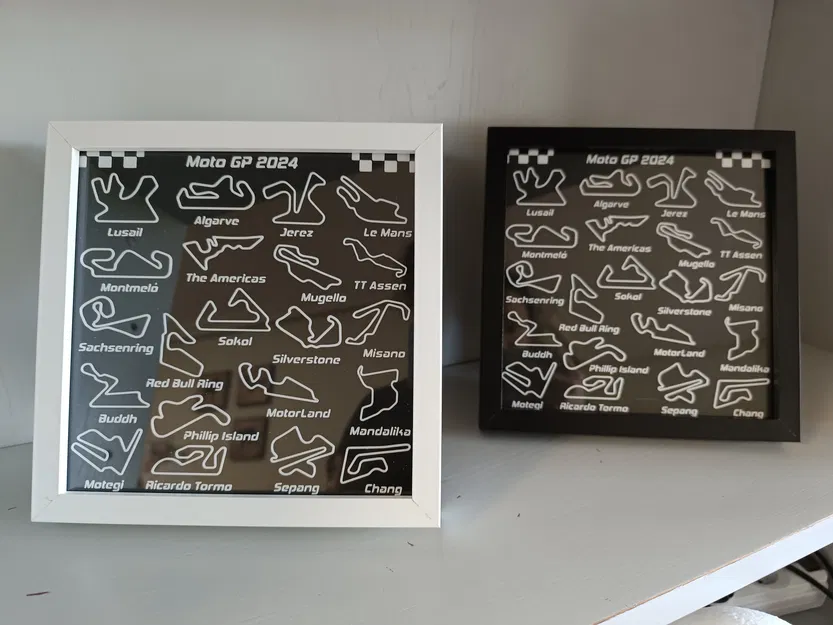 Moto GP 2024
Lusail
Algarve
Jerez
Le Mans
Montmeló
The Americas
Mugello
TT Assen
Sachsenring
Sokol
Silverstone
Misano
Red Bull Ring
Buddh
Phillip Island
MotorLand
Mandalika
Motegi
Ricardo Tormo
Sepang
Chang
Moto GP 2024
Lusail
Algarve
Jerez
Le Mans
Montmeló
The Americas
Mugello
TT Assen
Sachsenring
Sokol
Silverstone
Misano
Red Bull Ring
Buddh
Phillip Island
MotorLand
Mandalika
Motegi
Ricardo Tormo
Sepang
Chang